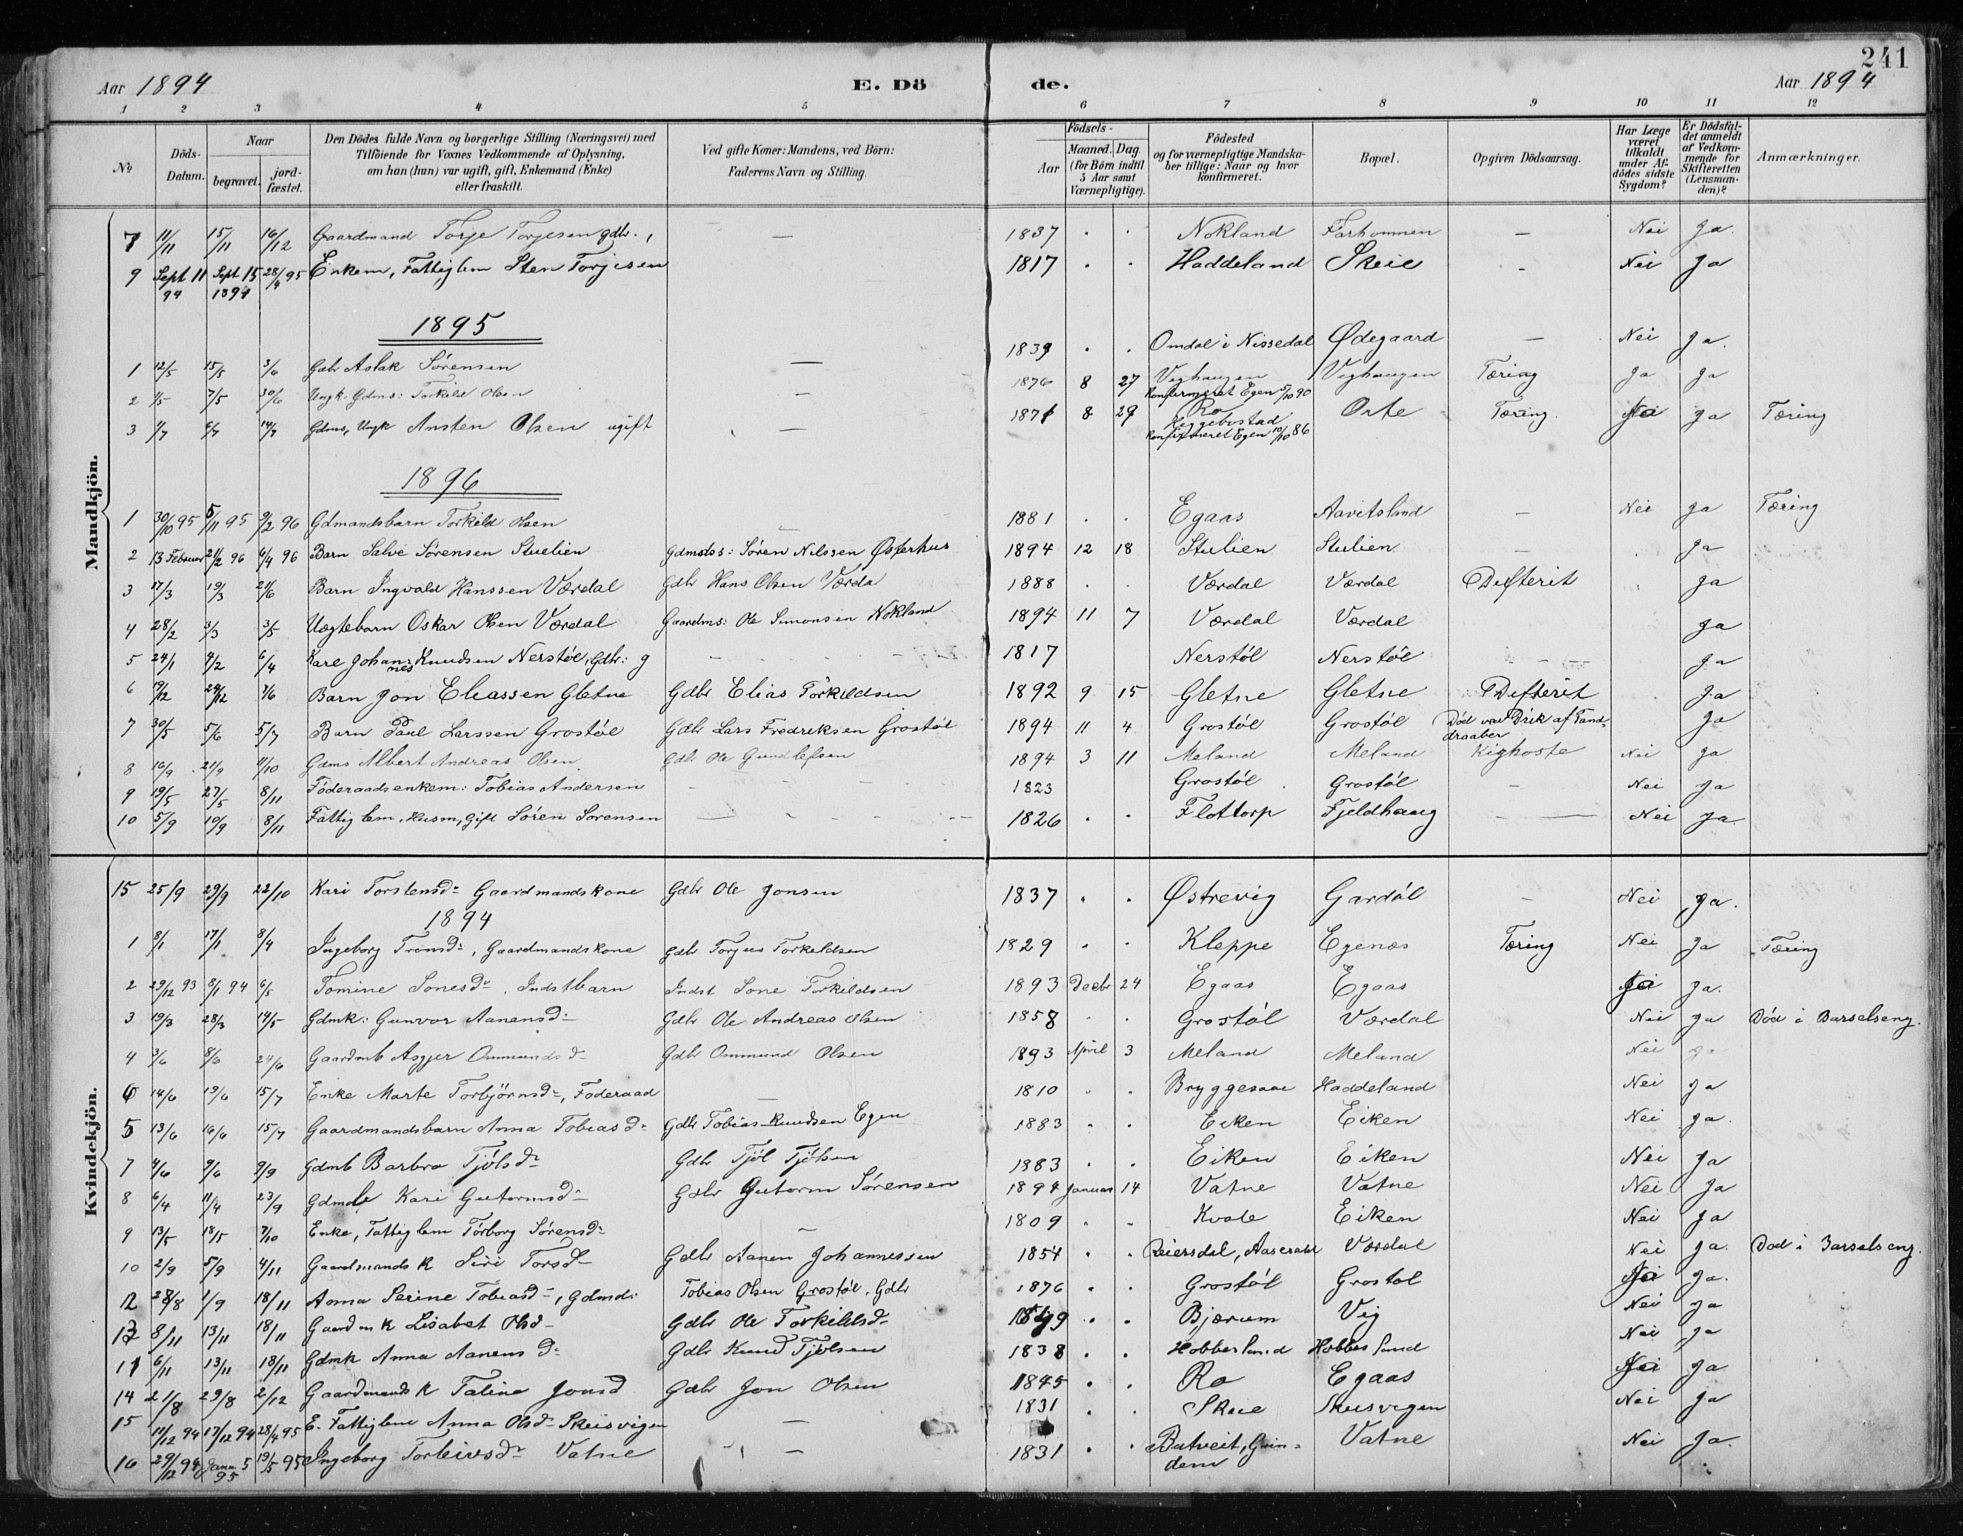 241
Aar 1894 E. Dö de. Aar 1894
1 2 3 4 5 6 7 8 9 10 11 12
№ Döds-Datum. Naar begravet. jord-fæstet. Den Dödes fulde Navn og borgerlige Stilling (Næringsvei) med Tilföiende for Voxnes Vedkommende af Oplysning, om han (hun) var ugift, gift, Enkemand (Enke) eller fraskilt. Ved gifte Koner: Mandens, ved Börn: Faderens Navn og Stilling. Födsels- Aar Maaned. Dag. (for Börn indtil 5 Aar samt Værnepligtige). Födested og for værnepligtige Mandskaber tillige: Naar og hvor konfirmeret. Bopæl. Opgiven Dödsaarsag. Har Læge været tilkaldt under Afdödes sidste Sygdom? Er Dödsfaldet anmeldt af Vedkommende for Skifteretten (Lensmanden)? Anmærkninger.
Mandkjön.
7 11/11 15/11 16/12 Gaardmand Torje Torjesen gdbr., — 1837 . . Nokland Farhommen — Nei Ja.
9 Sept 11 94 Sept 15 1894 28/4 95 Enkem, Fattiglem Sten Torjesen 1817 . . Haddeland Skeie - Nei Ja
1895
1 12/5 15/5 3/6 Gdbr Aslak Sörensen — 1839 . . Omdal i Nissedal Ødegaard — Nei Ja.
2 1/5 7/5 30/6 Ungk. Gdms: Torkild Olsen — 1876 8 27 Veghaugen Konfirmeret Egen 5/10 90 Veghaugen Tæring Ja Ja
3 2/7 6/7 14/7 Gdms, Ungk Ansten Olsen ugift — 1871 8 29 Ro Heggebostad Konfirmeret Egen 10/10 86 Orte Tæring. Ja Ja Tæring
1896
1 30/10 95 5/11 95 9/2 96 Gdmandsbarn Torkild Olsen — 1881 . . Egaas Aavitsland — Nei Ja Tæring
2 13 Februar 21/2 96 6/4 96 Barn Salve Sørensen Stulien Gdmds: Søren Nilssen Østerhus 1894 12 18 Stulien Stulien - Ja
3 17/3 19/3 21/6 Barn Ingvald Hanssen Værdal Gdbr Hans Olsen Værda 1888 . . Værdal Værdal Difterit Ja
4 28/2 3/3 3/5 Uægtebarn Oskar Olsen Værdal Gaardms: Ole Simonsen Nokland 1894 11 7 Værdal Værdal Ja
5 24/1 4/2 6/4 Kare Johannes Knudsen Nerstøl, Gdbr: g 1817 Nerstöl Nerstöl - - - Ja
6 19/12 24/12 7/6 Barn Jon Eliassen Gletne Gdbr Elias Törkildsen 1892 9 15 Gletne Gletne Difterit Ja
7 30/5 5/6 5/7 Barn Paul Larssen Grostøl Gdbr Lars Fredriksen Grostøl 1894 11 4 Grostöl Grostöl Död ved Drik af Tand-draaber Ja
8 16/9 21/9 4/10 Gdms Albert Andreas Olsen Gdbr Ole Gundlefsen 1894 3 11 Meland Meland Kighoste Nei Ja
9 19/5 27/5 8/11 Föderaadsenkem: Tobias Andersen - 1823 Grostöl Grostöl - Nei Ja
10 5/9 10/9 8/11 Fattiglem, Husm, gift Sören Sörensen 1826 . . Flottorp Fjeldhaug - Nei Ja.
Kvindekjön.
15 25/9 29/9 22/10 Kari Torstensd: Gaardmandskone Gdbr Ole Jonsen 1837 . . Østrevig Gardöl - Nei Ja.
1894
1 8/1 17/1 8/4 Ingeborg Trönsd:, Gaardmandskone gdbr Torjus Torkeldsen 1829 . . Kleppe Egenæs Tæring Nei Ja Tæring
2 29/12 93 8/1 94 6/5 Tomine Sonesd:. Indstbarn Indst Sone Torkildsen 1893 Decbr 24 Egaas Egaas Ja Ja.
3 19/3 28/3 14/5 Gdmk: Gunvor Aanensd: Gdbr Ole Andreas Olsen 1858 . . Grostöl Værdal Nei Ja Död i Barselseng.
4 3/6 8/6 24/6 Gaardmb Asgjer Ommundsd: Gdbr Ommund Olsen 1893 April 3 Meland Meland Nei Ja
6 14/6 19/6 15/7 Enke Marte Torbjörnsd:, Føderaad — 1810 . . Bryggesaae Haddeland Nei Ja
5 13/6 16/6 15/7 Gaardmandsbarn Anna Tobiasd: Gdbr Tobias Knudsen Egen 1883 . . Eiken Eiken Nei Ja.
7 4/6 9/6 9/9 Gdmb Barbro Tjölsd: Gdbr Tjöl Tjölsen 1883 . . Eiken Eiken Nei Ja
8 6/4 11/4 23/9 Gdmdb Kari Gutormsd: Gdbr Gutorm Sörensen 1894 Januar 14 Vatne Vatne Nei Ja
9 13/5 18/5 7/10 Enke, Fattiglem Törborg Sörensd: — 1809 . . Kvale Eiken Nei Ja
10 2/9 5/9 4/11 Gaardmands k Siri Torsd: Gdbr Aanen Johannessen 1854 . . Reiersdal, Aaseral Værdal Nei Ja. Död i Barselseng.
12 28/8 1/9 18/11 Anna Serine Tobiasd:, Gdmd: Tobias Olsen Grostøl. Gdbr 1876 . . Grostöl Grostöl Ja Ja.
13 8/11 13/11 18/11 Gaardm k Lisabet Olsd: Gdbr Ole Torkildsd: 1849 . . Bjærum Vig Nei Ja
11 6/11 13/11 18/11 Gdmk Anna Aanens d: Gdbr Knud Tjölsen 1838 . . Hobbesland Hobbesland Nei Ja
14 21/8 29/8 2/12 Gaardmands k Taline Jonsd Gdbr Jon Olsen 1845 . . Ro Egaas Ja Ja
15 11/12 94 17/12 94 28/4 95 E. Fattiglem Anna Olsd: Skeisvigen — 1831 . Skeie Skeisvigen Nei Ja
16 29/12 94 Janu 5 95 19/5 95 Ingeborg Torleivsd: Vatne — 1831 . . Butveit, Grindem Vatne Nei Ja.